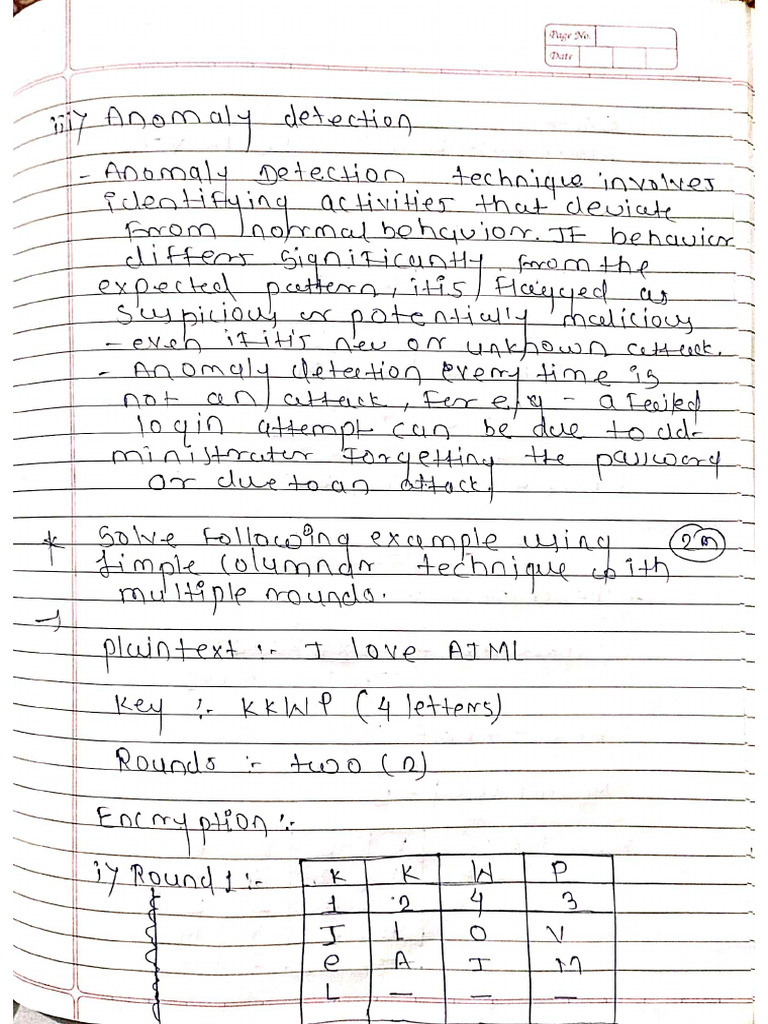 Page No.
Date
iii) Anomaly detection
- Anomaly Detection technique involves
identifying activities that deviate
from normal behavior. If behavior
differs significantly from the
expected pattern, it is flagged as
suspicious or potentially malicious
- even if it is new or unknown attack.
- Anomaly detection every time is
not an attack, for e.g - a failed
login attempt can be due to ad-
ministrator forgetting the password
or due to an attack.
* Solve following example using (2m)
simple columnar technique with
multiple rounds.
→
plaintext :- I love AIML
Key :- KKWP (4 letters)
Rounds :- two (2)
Encryption :-
i) Round 1 :- K K W P
1 2 4 3
I L O V
e A I M
L — — —